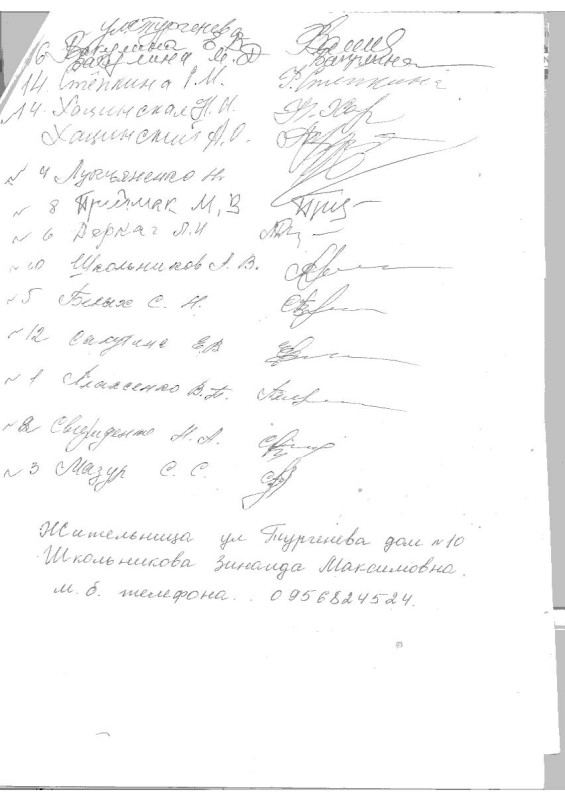 ул Тургенева
16 Вакулина Е В
Вакулина М. О Вакулина
14. Стёпкина Р. М. Р. Стёпкина
14. Хацинская Н. И.
Хацинский А. О.
№ 4 Лукьяненко Н.
№ 8 Приймак М, В
№ 6 Деркач Л. И
№ 10 Школьников А. В.
№ 5 Белых С. Н.
№ 12 Е В
№ 1 В. П.
№ 2 Свириденко Н. А.
№ 3 Мазур С. С.
Жительница ул Тургенева дом №10
Школьникова Зинаида Максимовна.
м. б. телефона. . 0956824524.